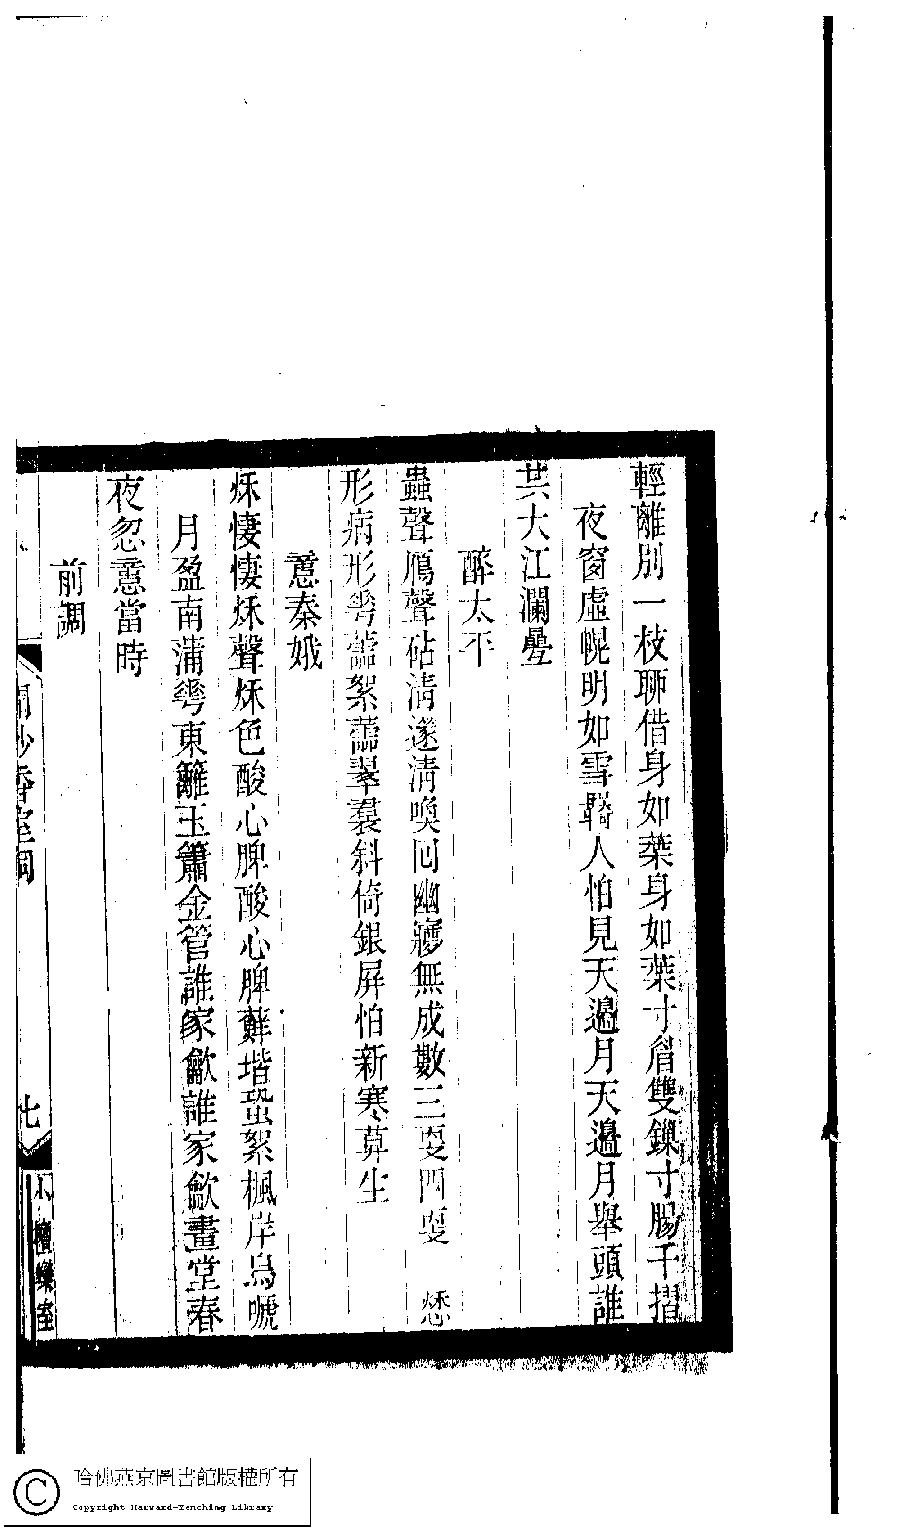 輕離別一枝聊借身如葉身如葉寸眉雙鏁寸腸千摺
夜窗虛幌明如雪羇人怕見天邊月天邊月舉頭誰
共大江瀾疊
醉太平
蟲聲鴈聲砧清漏清喚回幽㝱無成數三叓四叓 愁
形病形雩蘦絮蘦翠裠斜倚銀屏怕新寒莫生
憶秦娥
秌悽悽秌聲秌色酸心脾酸心脾蘚堦蛩絮楓岸烏嗁
月盈南蒲雩東籬玉簫金管誰家歈誰家歈畫堂春
夜忽憶當時
前調
香室詞
七
小檀欒室
哈佛燕京圖書館版權所有
Copyright Harvard-Yenching Library